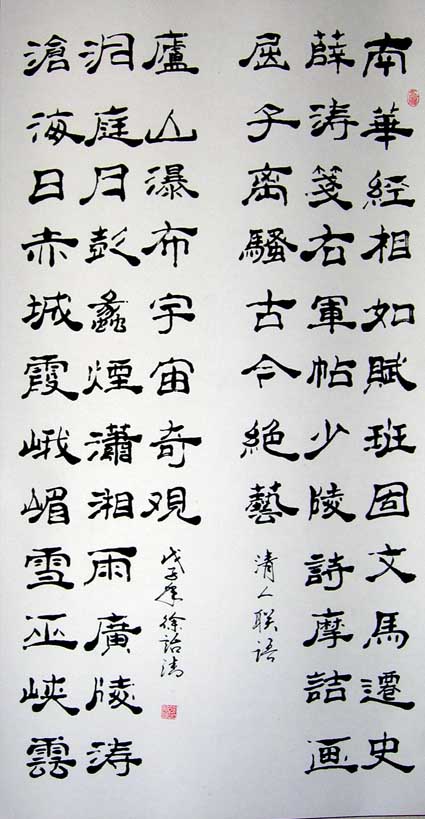 南華經相如賦班固文馬遷史
薛涛箋右軍帖少陵詩摩詰画
屈子离騷古今絶藝
清人联语
滄海日赤城霞峨嵋雪巫峽雲
洞庭月彭蠡煙瀟湘雨廣陵涛
廬山瀑布宇宙奇观
戊子年徐